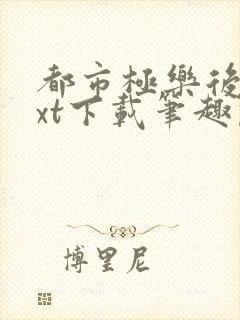 都市極樂後
xt下載筆趣
博里尼